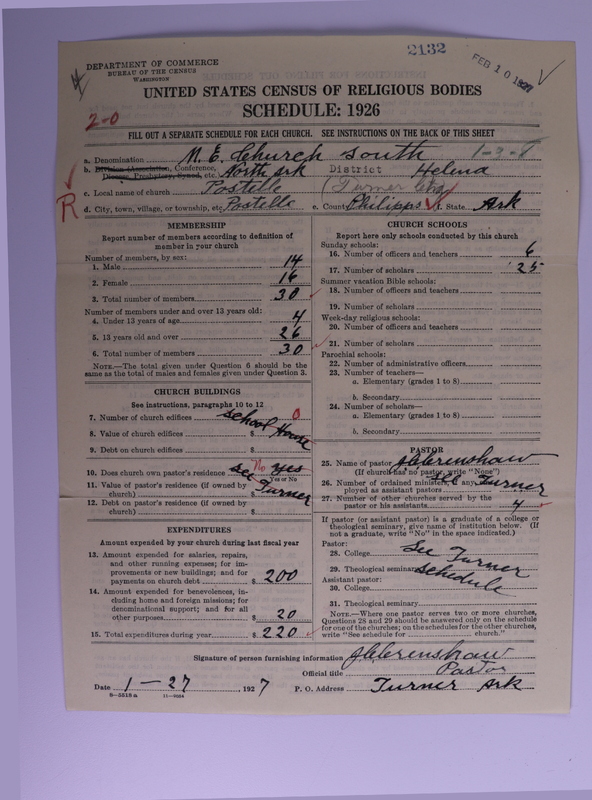 2132
FEB 10 1927
DEPARTMENT OF COMMERCE
BUREAU OF THE CENSUS
WASHINGTON
UNITED STATES CENSUS OF RELIGIOUS BODIES
SCHEDULE: 1926
2-0
FILL OUT A SEPARATE SCHEDULE FOR EACH CHURCH. SEE INSTRUCTIONS ON THE BACK OF THIS SHEET
a. Denomination M. E. Church South 1-3-8
b. Division (Association, Conference, North Ark District Helena
Diocese, Presbytery, Synod, etc.)
c. Local name of church Postelle (Turner Chg)
R
d. City, town, village, or township, etc. Postelle e. County Philipps f. State Ark
MEMBERSHIP
Report number of members according to definition of
member in your church
Number of members, by sex:
1. Male 14
2. Female 16
3. Total number of members 30
Number of members under and over 13 years old:
4. Under 13 years of age 4
5. 13 years old and over 26
6. Total number of members 30
NOTE.—The total given under Question 6 should be the
same as the total of males and females given under Question 3.
CHURCH BUILDINGS
See instructions, paragraphs 10 to 12
7. Number of church edifices School House 0
8. Value of church edifices $
9. Debt on church edifices $
10. Does church own pastor's residence No yes
Yes or No
11. Value of pastor's residence (if owned by
church) $ See Turner
12. Debt on pastor's residence (if owned by
church) $
EXPENDITURES
Amount expended by your church during last fiscal year
13. Amount expended for salaries, repairs,
and other running expenses; for im-
provements or new buildings; and for
payments on church debt $ 200
14. Amount expended for benevolences, in-
cluding home and foreign missions; for
denominational support; and for all
other purposes $ 20
15. Total expenditures during year $ 220
CHURCH SCHOOLS
Report here only schools conducted by this church
Sunday schools:
16. Number of officers and teachers 6
17. Number of scholars 25
Summer vacation Bible schools:
18. Number of officers and teachers
19. Number of scholars
Week-day religious schools:
20. Number of officers and teachers
21. Number of scholars
Parochial schools:
22. Number of administrative officers
23. Number of teachers—
a. Elementary (grades 1 to 8)
b. Secondary
24. Number of scholars—
a. Elementary (grades 1 to 8)
b. Secondary
PASTOR
25. Name of pastor Crenshaw
(If church has no pastor, write "None")
26. Number of ordained ministers, if any, em-
ployed as assistant pastors Turner
27. Number of other churches served by the
pastor or his assistants 4
If pastor (or assistant pastor) is a graduate of a college or
theological seminary, give name of institution below. (If
not a graduate, write "No" in the space indicated.)
Pastor:
28. College See Turner
29. Theological seminary Schedule
Assistant pastor:
30. College
31. Theological seminary
NOTE.—Where one pastor serves two or more churches,
Questions 28 and 29 should be answered only on the schedule
for one of the churches; on the schedules for the other churches,
write "See schedule for church."
Signature of person furnishing information Crenshaw
Official title Pastor
Date 1-27, 1927 P. O. Address Turner Ark
8-5518a 11-9084